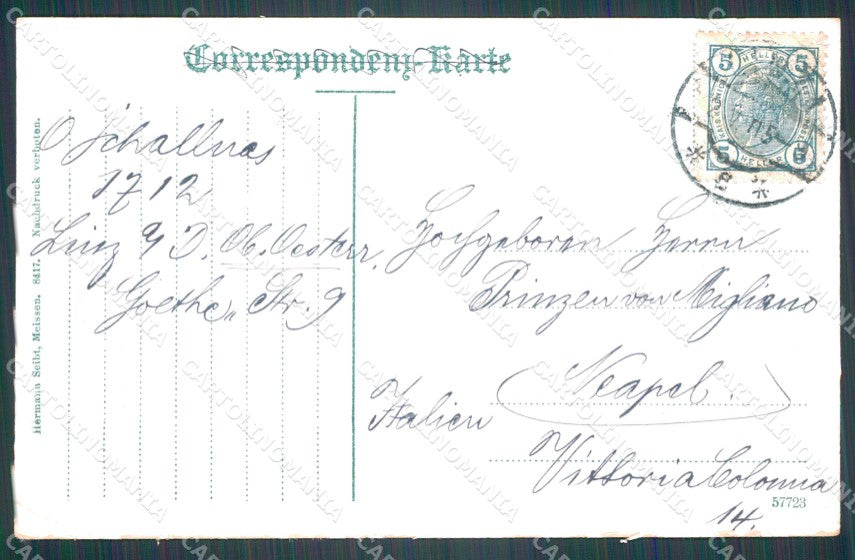 Correspondenz-Karte
5 HELLER 5
5 HELLER 5
O Schallnas
1712
Linz a/D. Ob. Oesterr.
Goethe Str. 9
Hochgeboren Herrn
Prinzen von Migliano
Neapel.
Italien
Vittoria Colonna
14.
57723
Hermann Seibt, Meissen. 8617. Nachdruck verboten.
CARTOLINOMANIA